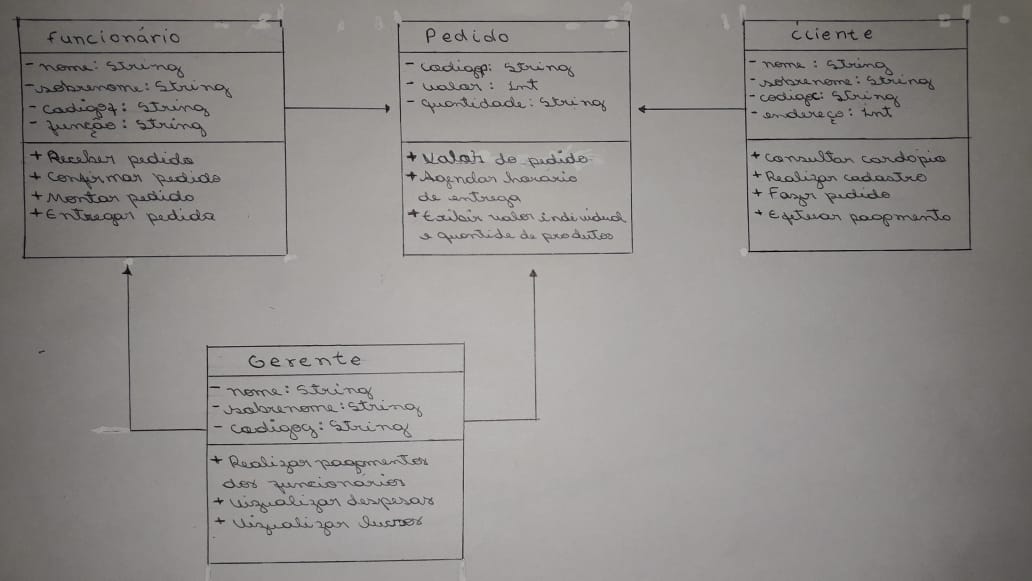 Funcionário
- nome: String
- sobrenome: String
- codigof: String
- função: String
+ Receber pedido
+ Confirmar pedido
+ Montar pedido
+ Entregar pedido
Pedido
- codigop: String
- valor: int
- quantidade: String
+ Valor do pedido
+ Agendar horário
de entrega
+ Exibir valor individual
e quantide de produtos
Cliente
- nome: String
- sobrenome: String
- codigoc: String
- endereço: int
+ Consultar cardápio
+ Realizar cadastro
+ Fazer pedido
+ Efetuar pagamento
Gerente
- nome: String
- sobrenome: String
- codigog: String
+ Realizar pagamentos
dos funcionários
+ Vizualizar despesas
+ Vizualizar lucros